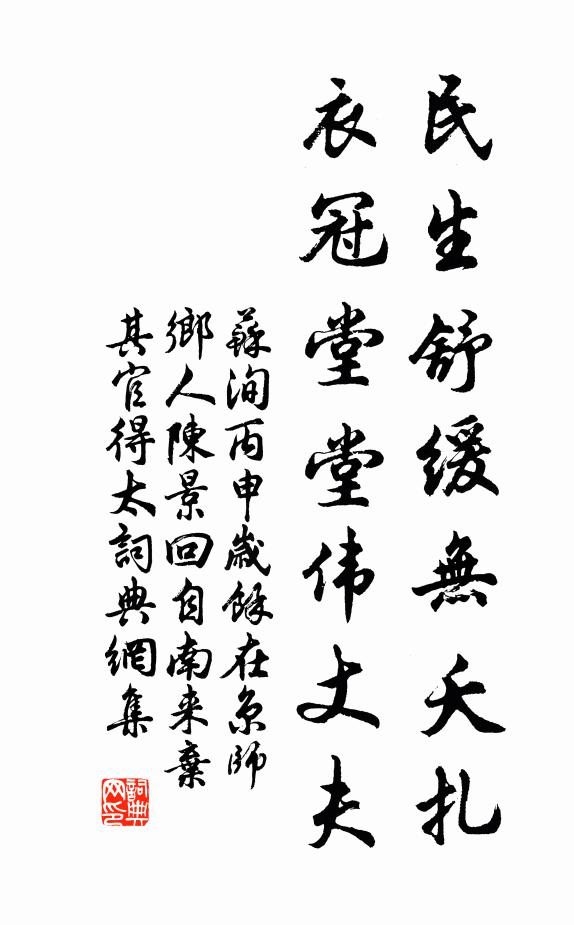 民生舒缓無夭扎
衣冠堂堂伟丈夫
蘇洵丙申歲餘在京師
鄉人陳景回自南来棄
其官得太詞典網集
詞典网印